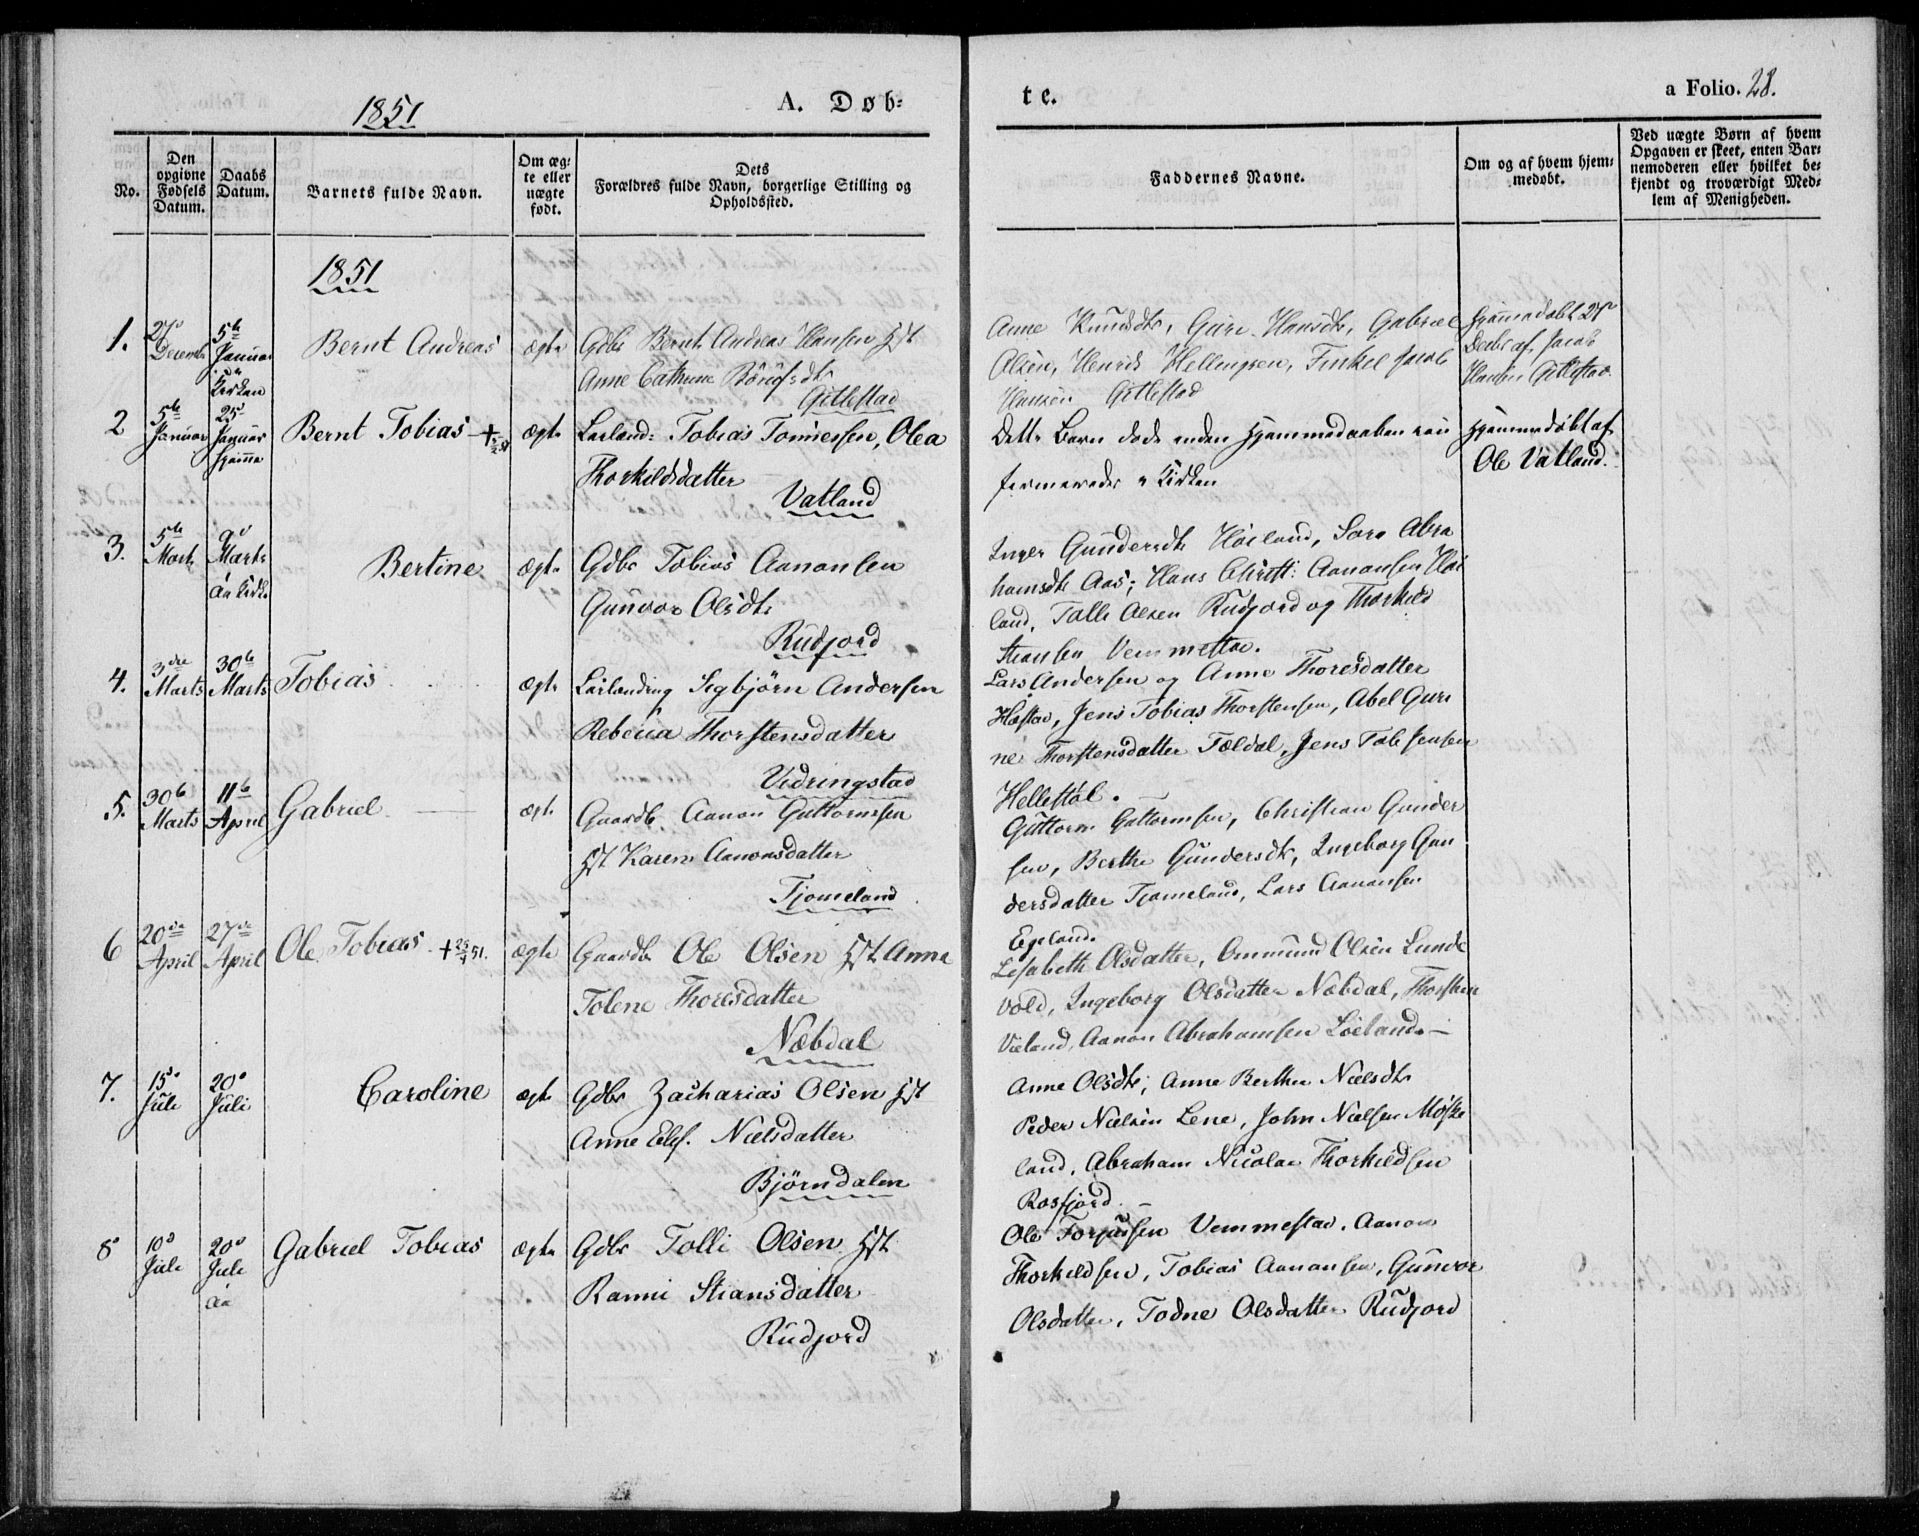 1851
A. Døb=
te.
a Folio. 28.
No.
Den opgivne Fødsels Datum.
Daabs Datum.
Barnets fulde Navn.
Om ægte eller uægte født.
Dets Forældres fulde Navn, borgerlige Stilling og Opholdssted.
Faddernes Navne.
Om og af hvem hjemmedøbt.
Ved uægte Børn af hvem Opgaven er skeet, enten Barnemoderen eller hvilket bekjendt og troværdigt Medlem af Menigheden.
1851
1. 27 Decemb 5te Januar Kirken Bernt Andreas ægte
Gdbr Bernt Andreas Hansen Hst
Anne Cathrine
Gitlestad
Anne Knudsdtr, Guri Hansdtr, Gabriel
Olsen, Henrik Hellingsen, Jacob
Hansen Gitlestad
Hjemmedøbt 28
Decbr af Jacob
Hansen Gitlestad.
2 5te Januar 25 Januar hjemme Bernt Tobias + ægte
Leiland: Tobias Tønnessen, Olea
Thorkildsdatter
Vatland
Dette Barn døde inden Hjemmedaaben con
firmeredes i Kirken
Hjemmedøbt af
Ole Vatland.
3. 5te Marts 9 Marts Bertine ægte
Gdbr Tobias Aanonsen
Gunvor Olsdtr
Rudjord
Inger Gundersdtr Høiland, Sara Abra
hamsdtr Aas; Hans Christ: Aanonsen Høi
land, Tolle Olsen Rudjord og Thorkild
Stiansen Vemmestad.
4. 3die Marts 30te Marts Tobias ægte
Leilending Segbjørn Andersen
Rebecca Thorstensdatter
Vedringstad
Lars Andersen og Anne Thoresdatter
Hæstad, Jens Tobias Thorstensen, Abel Guri
ne Thorstensdatter Føldal, Jens Tob: Jensen
Hellestøl.
5. 30te Marts 11te April Gabriel ægte
Gaardb. Aanon Guttormsen
Hst Karen Aanonsdatter
Tjomeland
Guttorm Guttormsen, Christian Gunder
sen, Berthe Gundersdtr, Ingeborg Gun
dersdatter Tjomeland, Lars Aanonsen
Egeland.
6 20de April 27de April Ole Tobias + 51. ægte
Gaardb Ole Olsen Hst Anna
Tolene Thoresdatter
Næbdal
Lisabeth Olsdatter, Ommund Olsen Lunde
vold, Ingeborg Olsdatter Næbdal, Thorsten
Aanon Abrahamsen
7. 15de Juli 20de Juli Caroline ægte
Gdbr Zacharias Olsen Hst
Anne Elis. Nielsdatter
Bjørndalen
Anne Olsdtr, Anne Berthe Nielsdtr
Peder Nielsen Lene, John Nielsen Møske
land, Abraham Nicolai Thorkildsen
Rosfjord.
8 10de Juli 20de Juli Aa Gabriel Tobias ægte
Gdbr Tolli Olsen Hst
Ranni Stiansdatter
Rudjord
Ole Torjussen Vemmestad. Aanon
Thorkildsen, Tobias Aanonsen, Gunvor
Olsdatter, Todne Olsdatter Rudjord